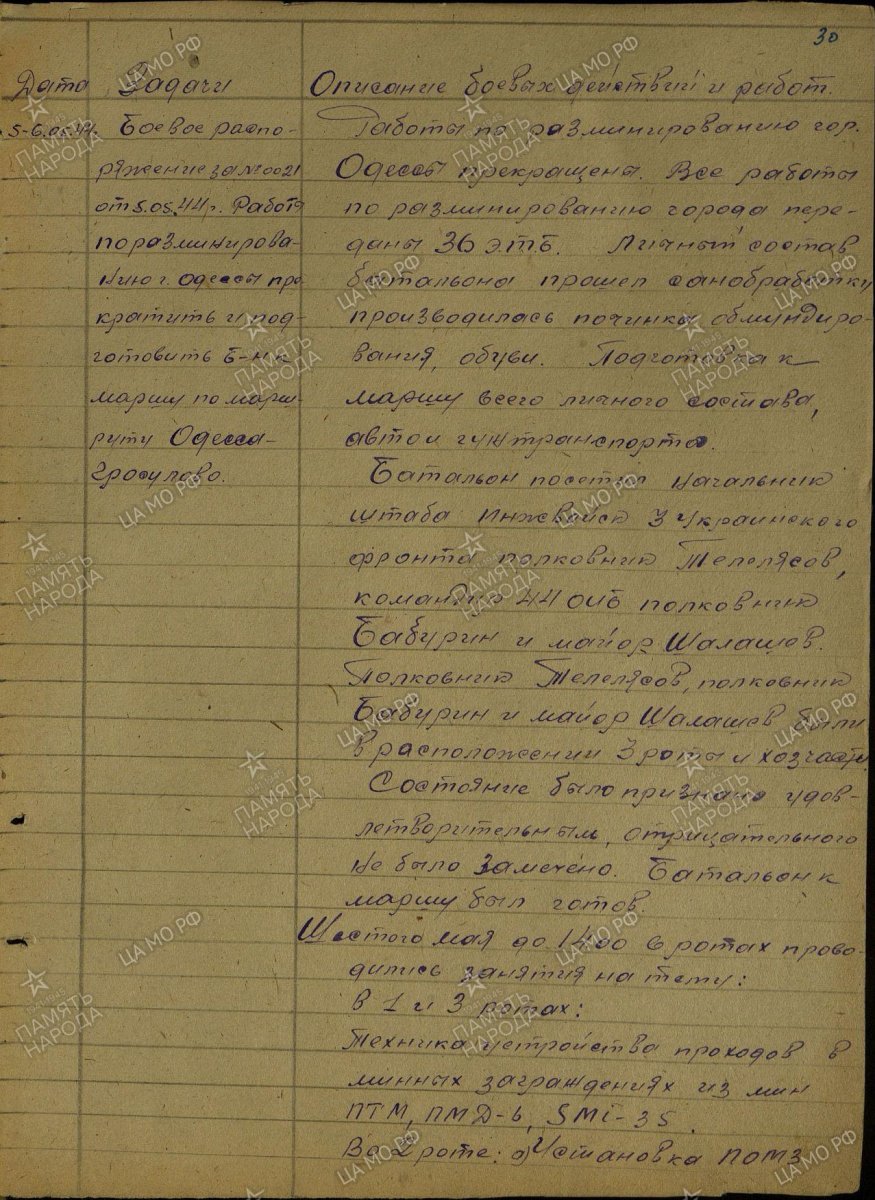 30
Дата
Задачи
Описание боевых действий и работ.
5-6.05.44г.
Боевое распо-
ряжение за №0021
от 5.05.44г. Работы
по разминирова-
нию г. Одессы пре
кратить и под-
готовить б-н к
маршу по марш-
руту Одесса-
Гросулово.
Работы по разминированию гор.
Одессы прекращены. Все работы
по разминированию города пере-
даны 36 э.т.б. Личный состав
батальона прошел санобработку
производилась починка обмундиро-
вания, обуви. Подготовка к
маршу всего личного состава,
авто и гужтранспорта.
Батальон посетил начальник
штаба инжвойск 3 Украинского
фронта полковник Телелясов,
командир 44 оиб полковник
Бабурин и майор Шалашев.
Полковник Телелясов, полковник
Бабурин и майор Шалашев были
в расположении 3 роты и хозчасти.
Состояние было признано удов-
летворительным, отрицательного
не было замечено. Батальон к
маршу был готов.
Шестого мая до 14.00 в ротах прово-
дились занятия на тему:
в 1 и 3 ротах:
Техника устройства проходов в
минных заграждениях из мин
ПТМ, ПМД-6, SMi-35.
Во 2 роте: а) Установка ПОМЗ
ЦА МО РФ
1941-1945
ПАМЯТЬ
НАРОДА